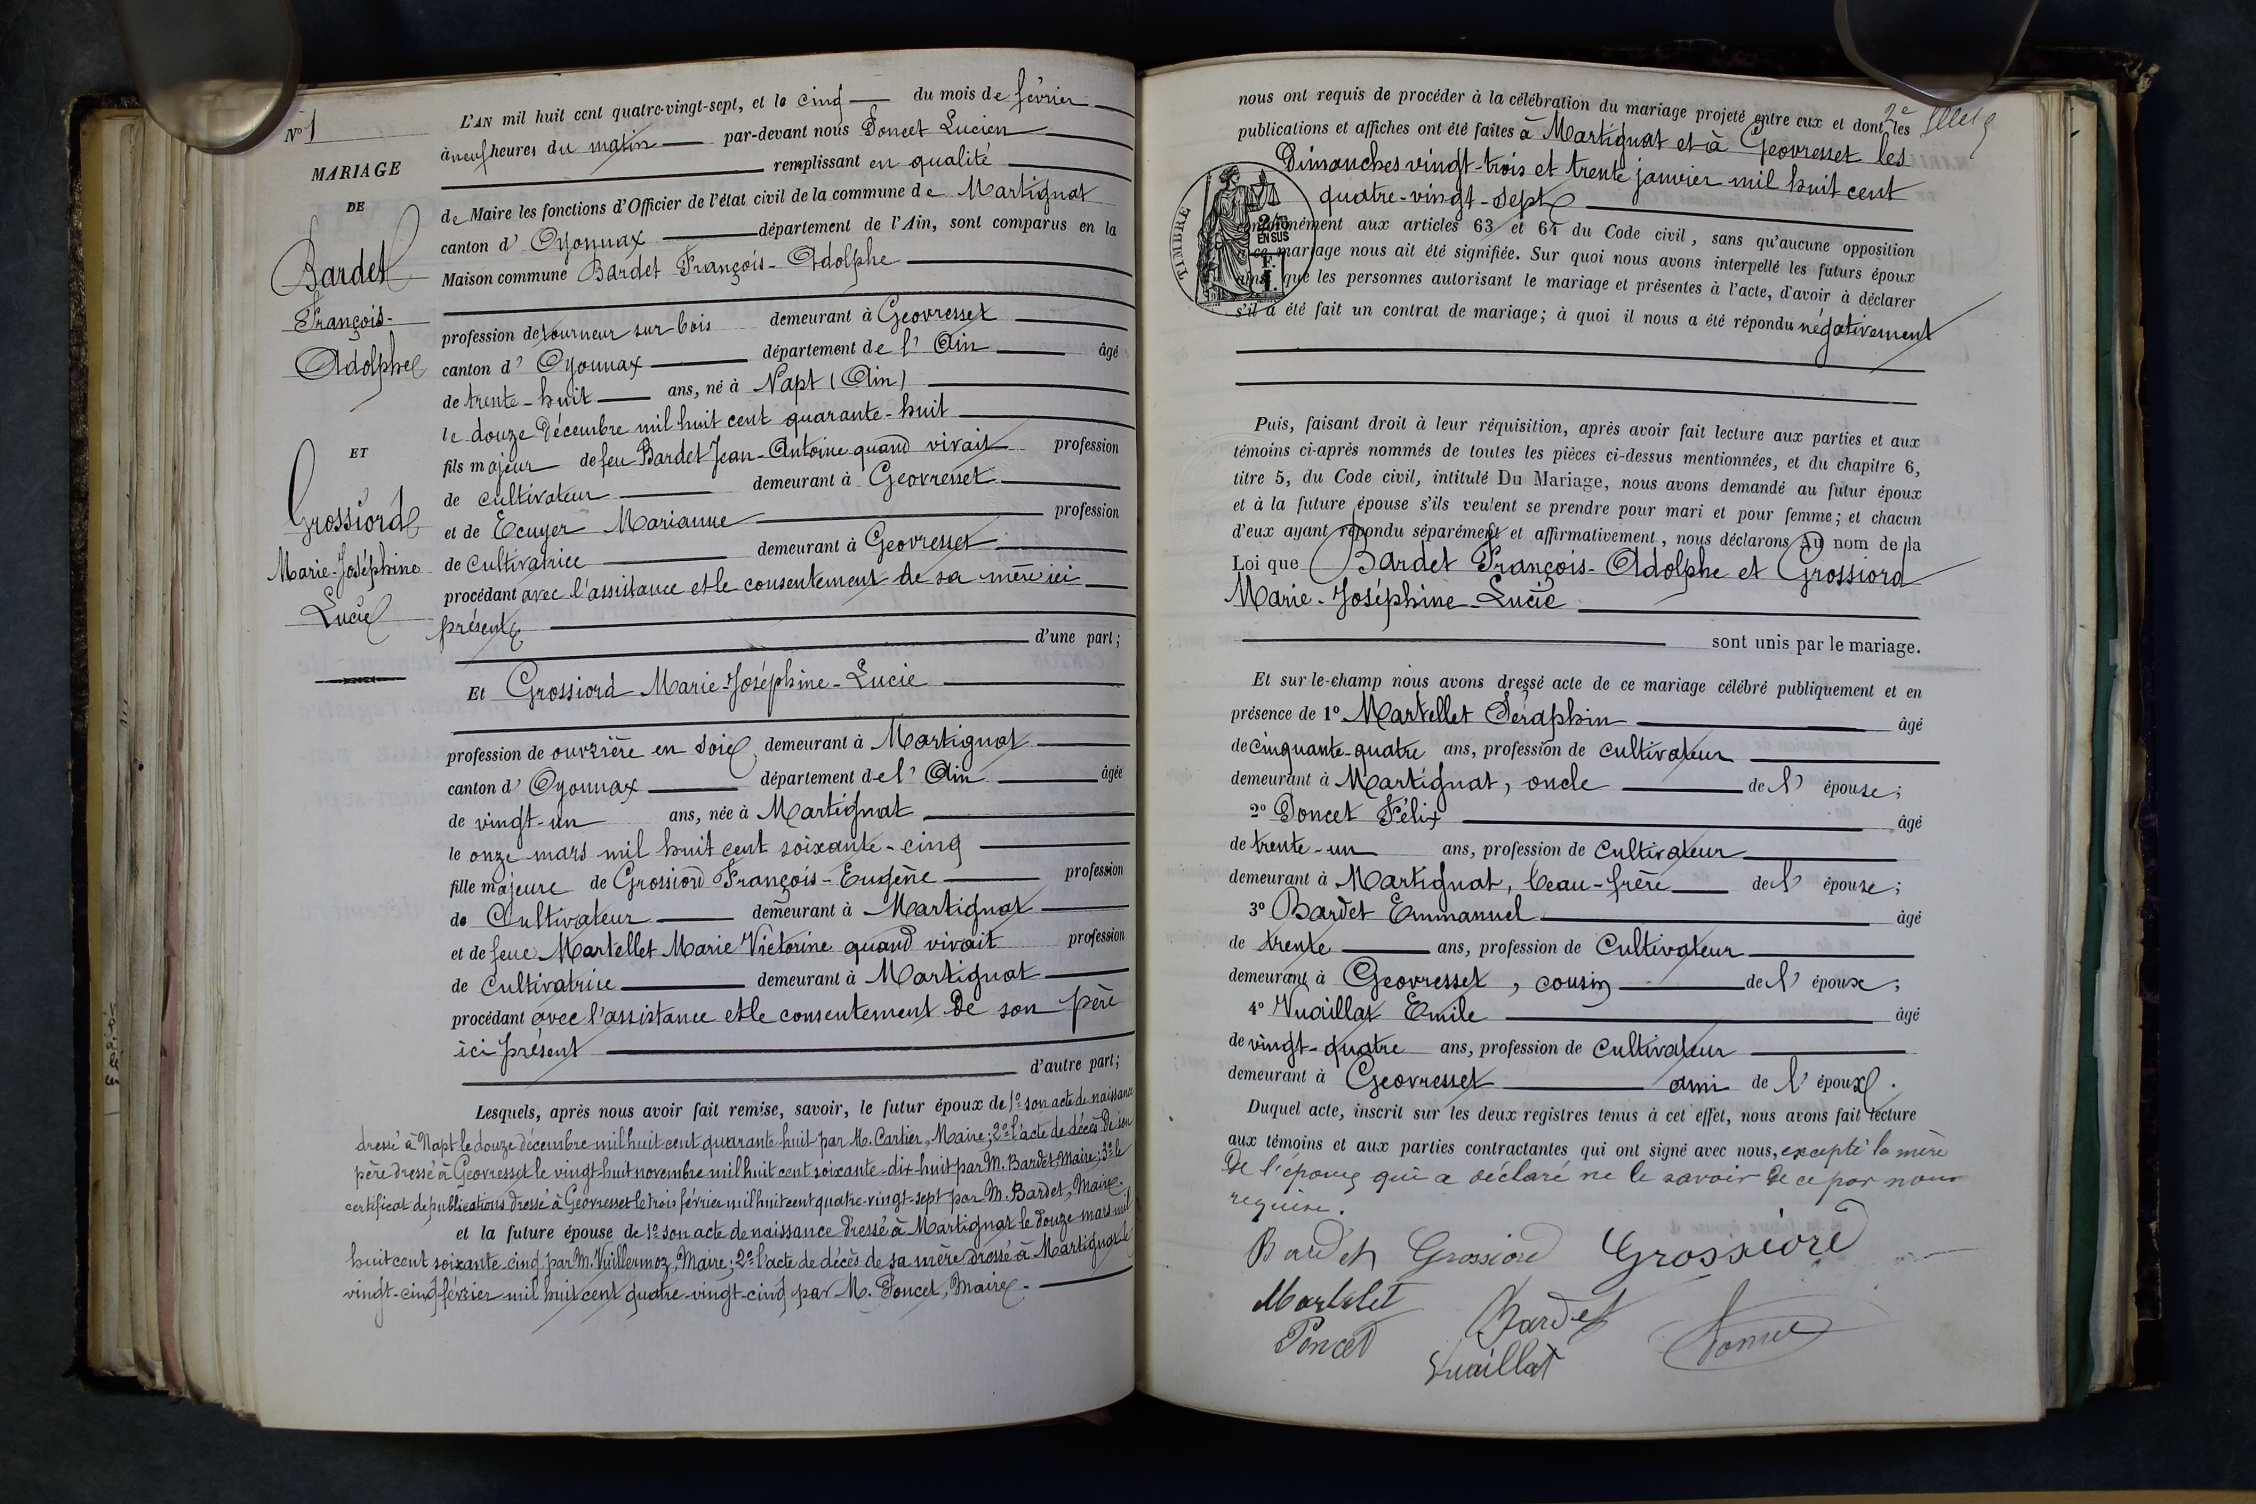 N° 1
MARIAGE
DE
Bardet
François-
Adolphe
ET
Grossiord
Marie-Joséphine
Lucie
L'AN mil huit cent quatre-vingt-sept, et le cinq du mois de février
à neuf heures du matin par-devant nous Poncet Lucien
remplissant en qualité
de Maire les fonctions d'Officier de l'état civil de la commune de Martignat
canton d' Oyonnax département de l'Ain, sont comparus en la
Maison commune Bardet François-Adolphe
profession de tourneur sur bois demeurant à Geovresset
canton d' Oyonnax département de l' Ain âgé
de trente-huit ans, né à Napt (Ain)
le douze Décembre mil huit cent quarante-huit
fils majeur de feu Bardet Jean-Antoine quand vivait profession
de cultivateur demeurant à Geovresset
et de Ecuyer Marianne profession
de cultivatrice demeurant à Geovresset
procédant avec l'assistance et le consentement de sa mère ici
présente
d'une part;
Et Grossiord Marie-Joséphine-Lucie
profession de ouvrière en soie demeurant à Martignat
canton d' Oyonnax département de l' Ain âgée
de vingt-un ans, née à Martignat
le onze mars mil huit cent soixante-cinq
fille majeure de Grossiord François-Eugène profession
de Cultivateur demeurant à Martignat
et de feue Martellet Marie Victorine quand vivait profession
de Cultivatrice demeurant à Martignat
procédant avec l'assistance et le consentement de son père
ici présent
d'autre part;
Lesquels, après nous avoir fait remise, savoir, le futur époux de 1° son acte de naissance
dressé à Napt le douze décembre mil huit cent quarante huit par M. Cartier, Maire; 2° l'acte de décès de son
père dressé à Geovresset le vingt-huit novembre mil huit cent soixante-dix-huit par M. Bardet, Maire; 3° le
certificat de publications dressé à Geovresset le trois février mil huit cent quatre-vingt-sept par M. Bardet, Maire.
et la future épouse de 1° son acte de naissance dressé à Martignat le douze mars mil
huit cent soixante-cinq par M. Vuillermoz, Maire; 2° l'acte de décès de sa mère dressé à Martignat le
vingt-cinq février mil huit cent quatre-vingt-cinq par M. Poncet, Maire.
nous ont requis de procéder à la célébration du mariage projeté entre eux et dont les
publications et affiches ont été faites à Martignat et à Geovresset les
Dimanches vingt-trois et trente janvier mil huit cent
quatre-vingt-sept
TIMBRE
2/10
EN SUS
conformément aux articles 63 et 64 du Code civil, sans qu'aucune opposition
à ce mariage nous ait été signifiée. Sur quoi nous avons interpellé les futurs époux
ainsi que les personnes autorisant le mariage et présentes à l'acte, d'avoir à déclarer
s'il a été fait un contrat de mariage; à quoi il nous a été répondu négativement
Puis, faisant droit à leur réquisition, après avoir fait lecture aux parties et aux
témoins ci-après nommés de toutes les pièces ci-dessus mentionnées, et du chapitre 6,
titre 5, du Code civil, intitulé Du Mariage, nous avons demandé au futur époux
et à la future épouse s'ils veulent se prendre pour mari et pour femme; et chacun
d'eux ayant répondu séparément et affirmativement, nous déclarons au nom de la
Loi que Bardet François-Adolphe et Grossiord
Marie-Joséphine-Lucie
sont unis par le mariage.
Et sur-le-champ nous avons dressé acte de ce mariage célébré publiquement et en
présence de 1° Martellet Séraphin âgé
de cinquante-quatre ans, profession de cultivateur
demeurant à Martignat, oncle de l' épouse;
2° Poncet Félix âgé
de trente-un ans, profession de Cultivateur
demeurant à Martignat, beau-frère de l' épouse;
3° Bardet Emmanuel âgé
de trente ans, profession de Cultivateur
demeurant à Geovresset, cousin de l' époux;
4° Vuaillat Emile âgé
de vingt-quatre ans, profession de Cultivateur
demeurant à Geovresset ami de l' époux.
Duquel acte, inscrit sur les deux registres tenus à cet effet, nous avons fait lecture
aux témoins et aux parties contractantes qui ont signé avec nous, excepté la mère
de l'époux qui a déclaré ne le savoir de ce par nous
requise.
Bardet Grossiord Grossiord
Martelet Bardet Poncet
Poncet Vuaillat